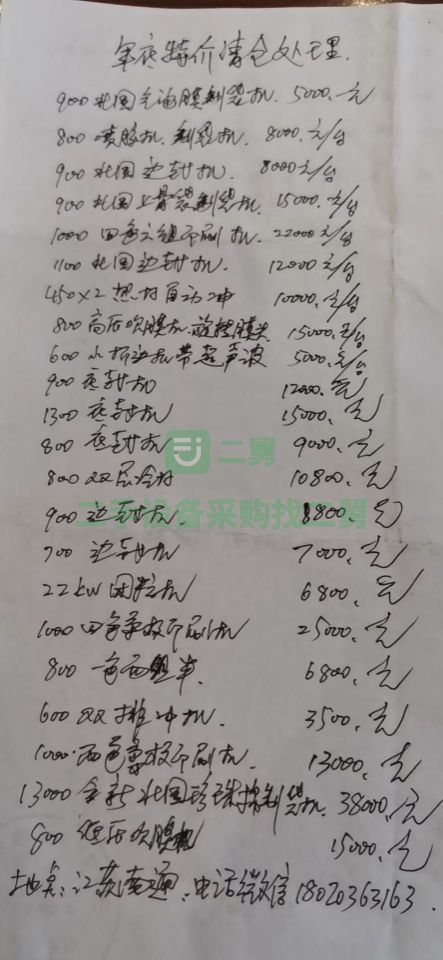 年底特价清仓处理.
900 北国气泡膜制袋机. 5000.元
800 喷胶机. 制袋机. 8000.元/台
900 北国边封机. 8000元/台
900 北国上骨袋制袋机. 15000.元/台
1000 四色六组印刷机. 22000元/台
1100 北国边封机. 12000元/台
450×2 热封自动冲 10000.元/台
800 高压吹膜机.旋转膜头 15000.元/台
600 小折边机带超声波 5000.元/台
900 底封机 12000.元
1300 底封机 15000.元
800 底封机 9000.元
二舅
800 双层冷切 10800.元
二手设备采购找二舅
900 边封机. 8800.元
700 边封机 7000.元
22kw 团粒机 6800.元
1000 四色柔板印刷机 25000.元
800 一色 6800.元
600 双排冲机. 3500.元
1000.两色柔板印刷机. 13000.元
13000 全新北国珍珠棉制袋机. 38000.元
800 低压吹膜机 15000.元
地点:江苏南通.电话微信18020363163.